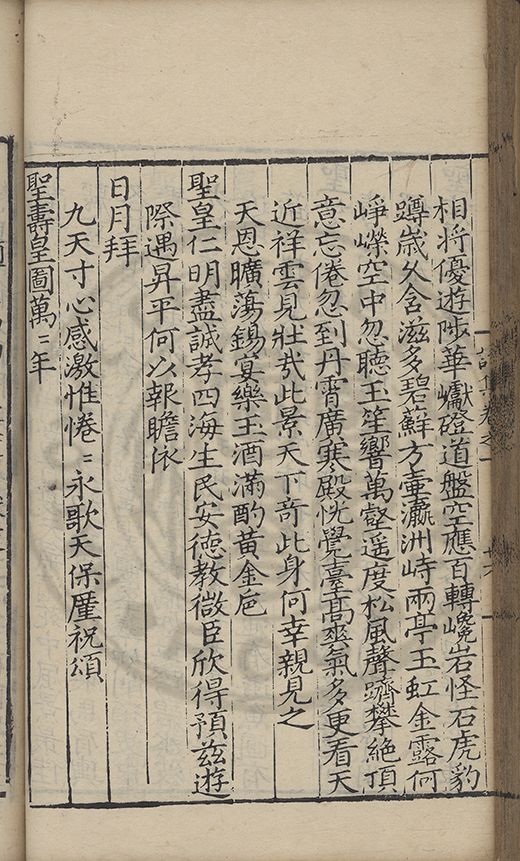 相将優遊陟華巘磴道盤空應百轉巉岩怪石虎豹
蹲歲久含滋多碧蘚方壷瀛洲峙兩亭玉虹金露何
崢嶸空中忽聴玉笙響萬壑遥度松風聲躋攀絶頂
意忘倦忽到丹霄廣寒殿恍覺臺髙爽氣多更看天
近祥雲見壮㢤此景天下竒此身何幸親見之
天恩曠蕩錫宴樂玉酒滿酌黄金卮
聖皇仁明盡誠孝四海生民安徳教微臣欣得預兹遊
際遇昇平何以報瞻依
日月拜
九天寸心感激惟惓〻永歌天保厪祝頌
聖壽皇圖萬〻年